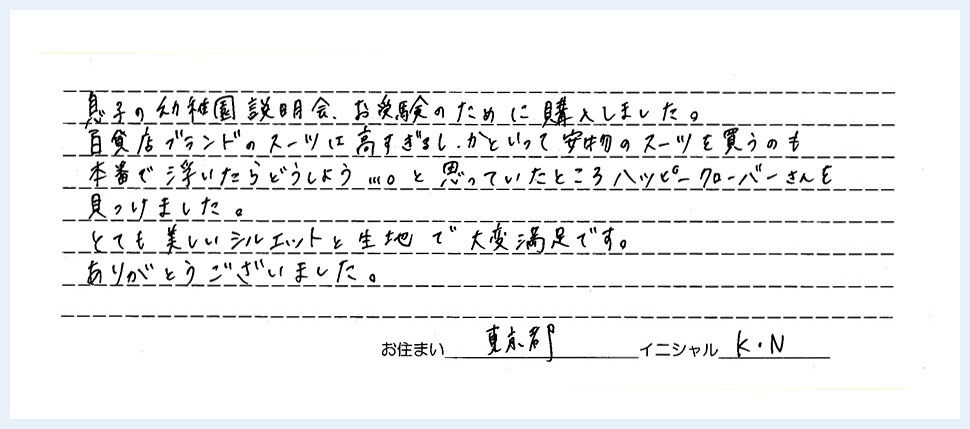 息子の幼稚園説明会、お受験のために購入しました。
百貨店ブランドのスーツは高すぎるし、かといって安物のスーツを買うのも
本番で浮いたらどうしよう…。と思っていたところハッピークローバーさんを
見つけました。
とても美しいシルエットと生地で大変満足です。
ありがとうございました。
お住まい 東京都 イニシャル K・N